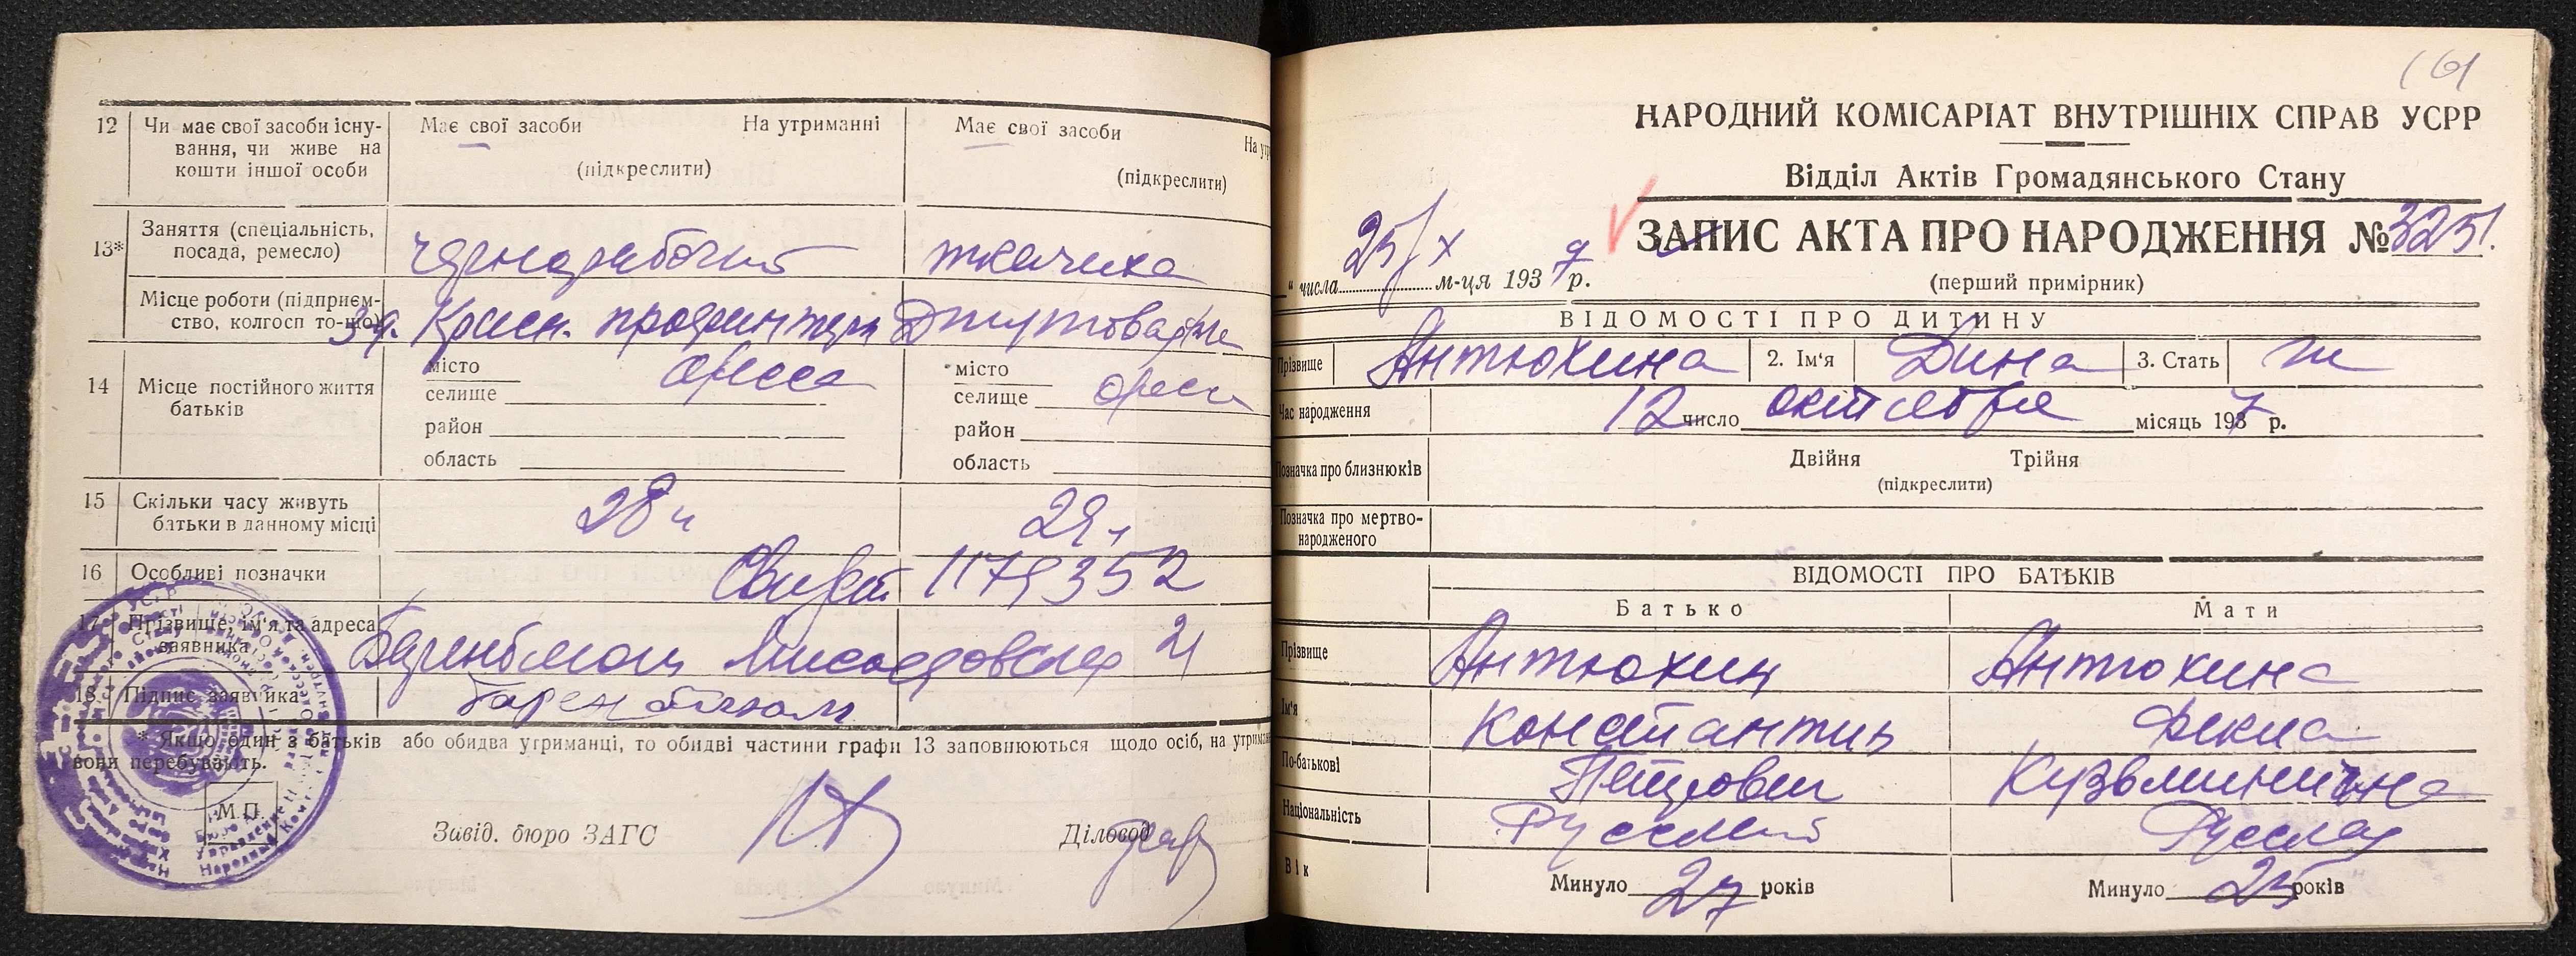 12 Чи має свої засоби існу- Має свої засоби На утриманні Має свої засоби
вання, чи живе на На утр
кошти іншої особи (підкреслити) (підкреслити)
13* Заняття (спеціальність,
посада, ремесло) чернорабочий ткачиха
Місце роботи (підприєм-
ство, колгосп то-що) Красн. профинтерн Джутовая
14 Місце постійного життя місто Одесса місто Одесса
батьків селище селище
район район
область область
15 Скільки часу живуть 28 29
батьки в данному місці
16 Особливі позначки Свидет 1179352
17 Прізвище, ім'я та адреса
заявника 21
18 Підпис заявника
* Якщо один з батьків або обидва утриманці, то обидві частини графи 13 заповнюються щодо осіб, на утрим
вони перебувають.
М.П.
Завід. бюро ЗАГС Діловод
161
НАРОДНИЙ КОМІСАРІАТ ВНУТРІШНІХ СПРАВ УСРР
Відділ Актів Громадянського Стану
ЗАПИС АКТА ПРО НАРОДЖЕННЯ № 3251.
" числа 25/X м-ця 1937 р. (перший примірник)
ВІДОМОСТІ ПРО ДИТИНУ
Прізвище Антюхина 2. Ім'я Дина 3. Стать ж
Час народження 12 число октября місяць 1937 р.
Позначка про близнюків Двійня Трійня
(підкреслити)
Позначка про мертво-
народженого
ВІДОМОСТІ ПРО БАТЬКІВ
Батько Мати
Прізвище Антюхин Антюхина
Ім'я Константин Фекла
По-батькові Петрович Кузьминична
Національність Русский Русская
Вік Минуло 27 років Минуло 25 років